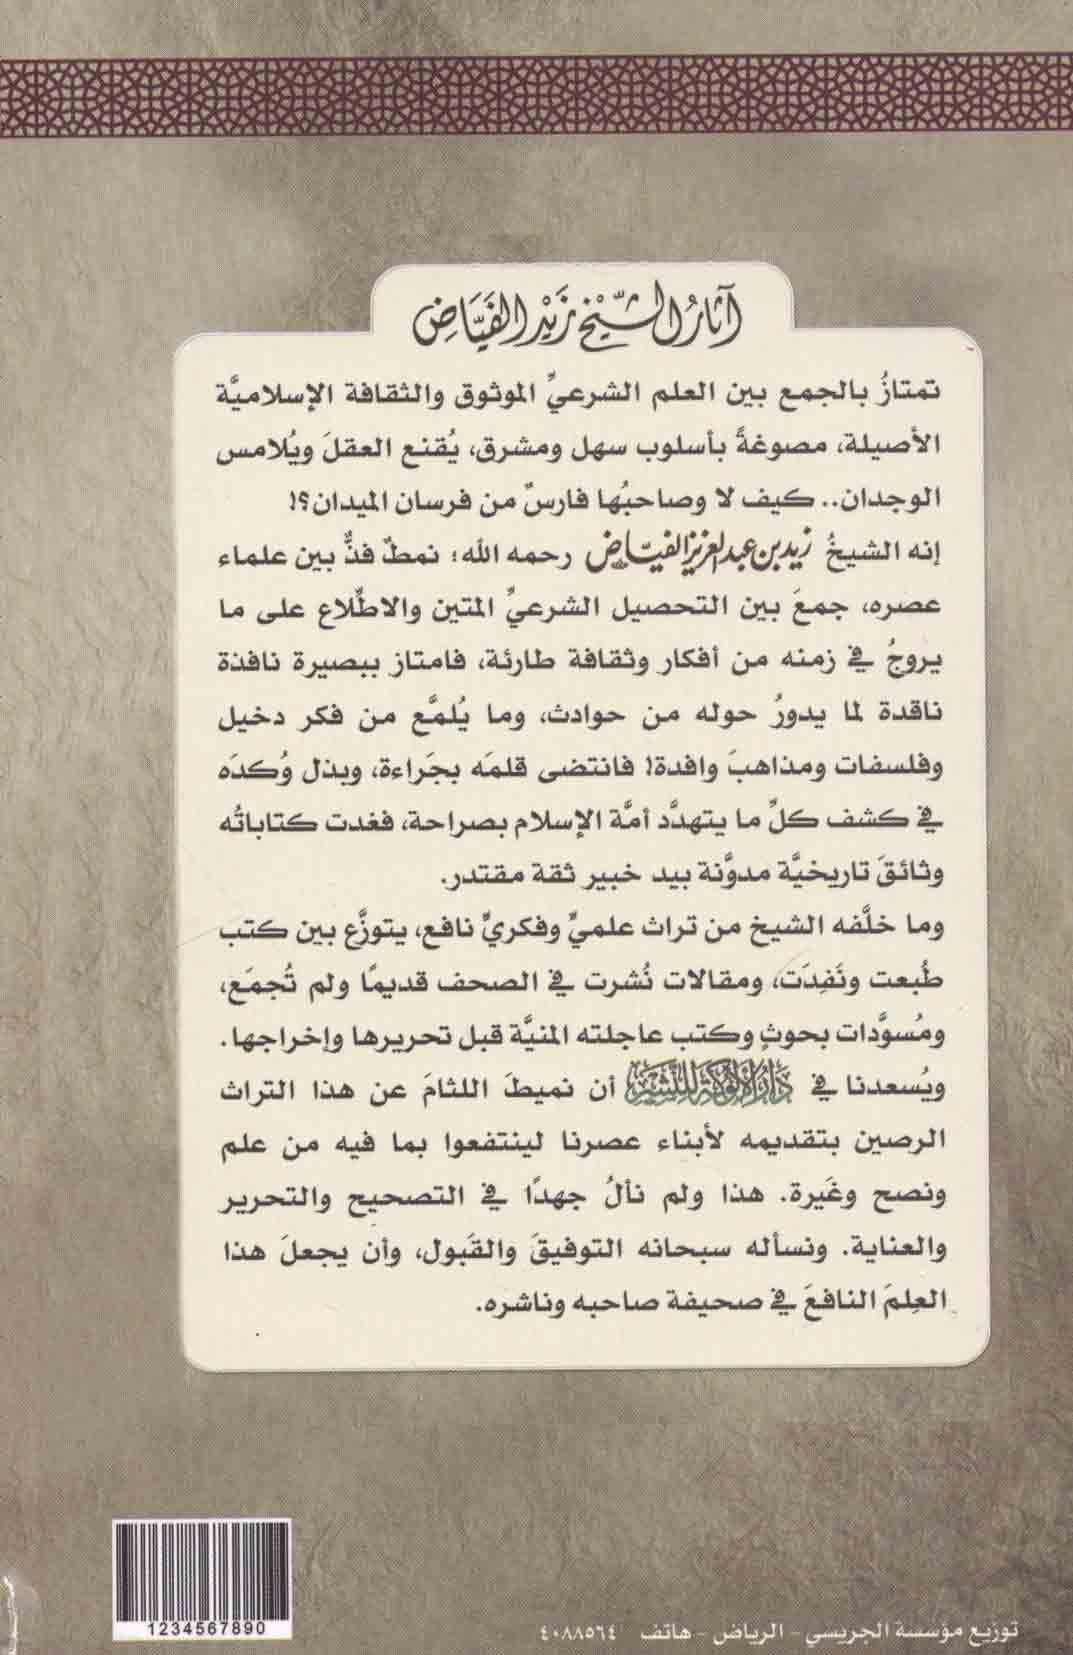 آثار الشَّيْخ زَيْد الفَيَّاض
تمتازُ بالجمع بين العلم الشرعيِّ الموثوق والثقافة الإسلاميَّة
الأصيلة، مصوغةً بأسلوب سهل ومشرق، يُقنع العقلَ ويُلامس
الوجدان.. كيف لا وصاحبُها فارسٌ من فرسان الميدان؟!
إنه الشيخُ زيد بن عبدالعزيز الفيّاض رحمه الله؛ نمطٌ فذٌّ بين علماء
عصره، جمعَ بين التحصيل الشرعيِّ المتين والاطِّلاع على ما
يروجُ في زمنه من أفكار وثقافة طارئة، فامتاز ببصيرة نافذة
ناقدة لما يدورُ حوله من حوادث، وما يُلمَّع من فكر دخيل
وفلسفات ومذاهبَ وافدة! فانتضى قلمَه بجَراءة، وبذل وُكدَه
في كشف كلِّ ما يتهدَّد أمَّة الإسلام بصراحة، فغدت كتاباتُه
وثائقَ تاريخيَّة مدوَّنة بيد خبير ثقة مقتدر.
وما خلَّفه الشيخ من تراث علميٍّ وفكريٍّ نافع، يتوزَّع بين كتب
طُبعت ونَفِدَت، ومقالات نُشرت في الصحف قديمًا ولم تُجمَع،
ومُسوَّدات بحوثٍ وكتب عاجلته المنيَّة قبل تحريرها وإخراجها.
ويُسعدنا في دار الألوكة للنشر أن نميطَ اللثامَ عن هذا التراث
الرصين بتقديمه لأبناء عصرنا لينتفعوا بما فيه من علم
ونصح وغَيرة. هذا ولم نألُ جهدًا في التصحيح والتحرير
والعناية. ونسأله سبحانه التوفيقَ والقَبول، وأن يجعلَ هذا
العِلمَ النافعَ في صحيفة صاحبه وناشره.
1234567890
توزيع مؤسسة الجريسي - الرياض - هاتف ٤٠٨٨٥٦٤